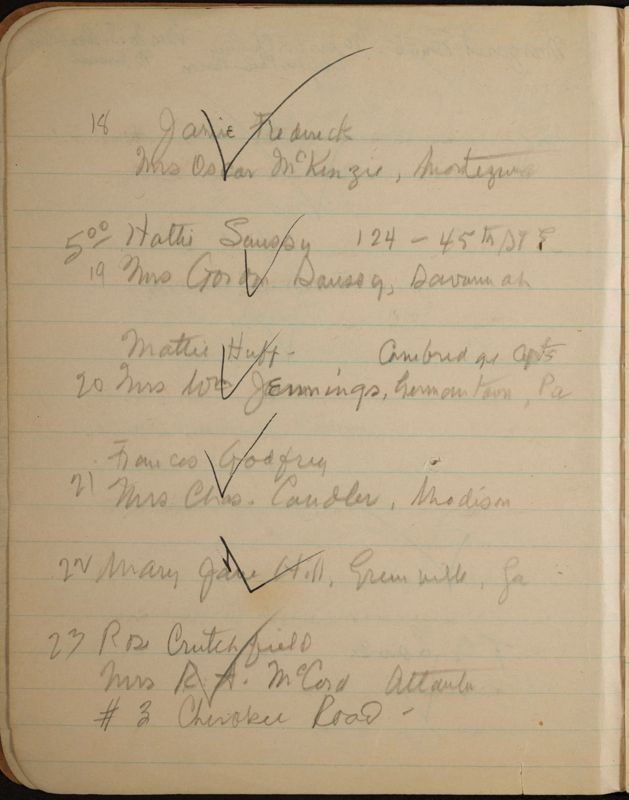 18 Janie Frederick
Mrs Oscar McKenzie, Montezuma
5 00 Hattie Saussy 124 - 45th St E
19 Mrs Gordon Saussy, Savannah
Mattie Huff - Cambridge Apts
20 Mrs Wm Jennings, Germantown, Pa
Frances Godfrey
21 Mrs Chas. Candler, Madison
22 Mary Jane Hill, Greenville, Ga
23 Rose Crutchfield
Mrs R. A. McCord Atlanta
# 3 Cherokee Road -